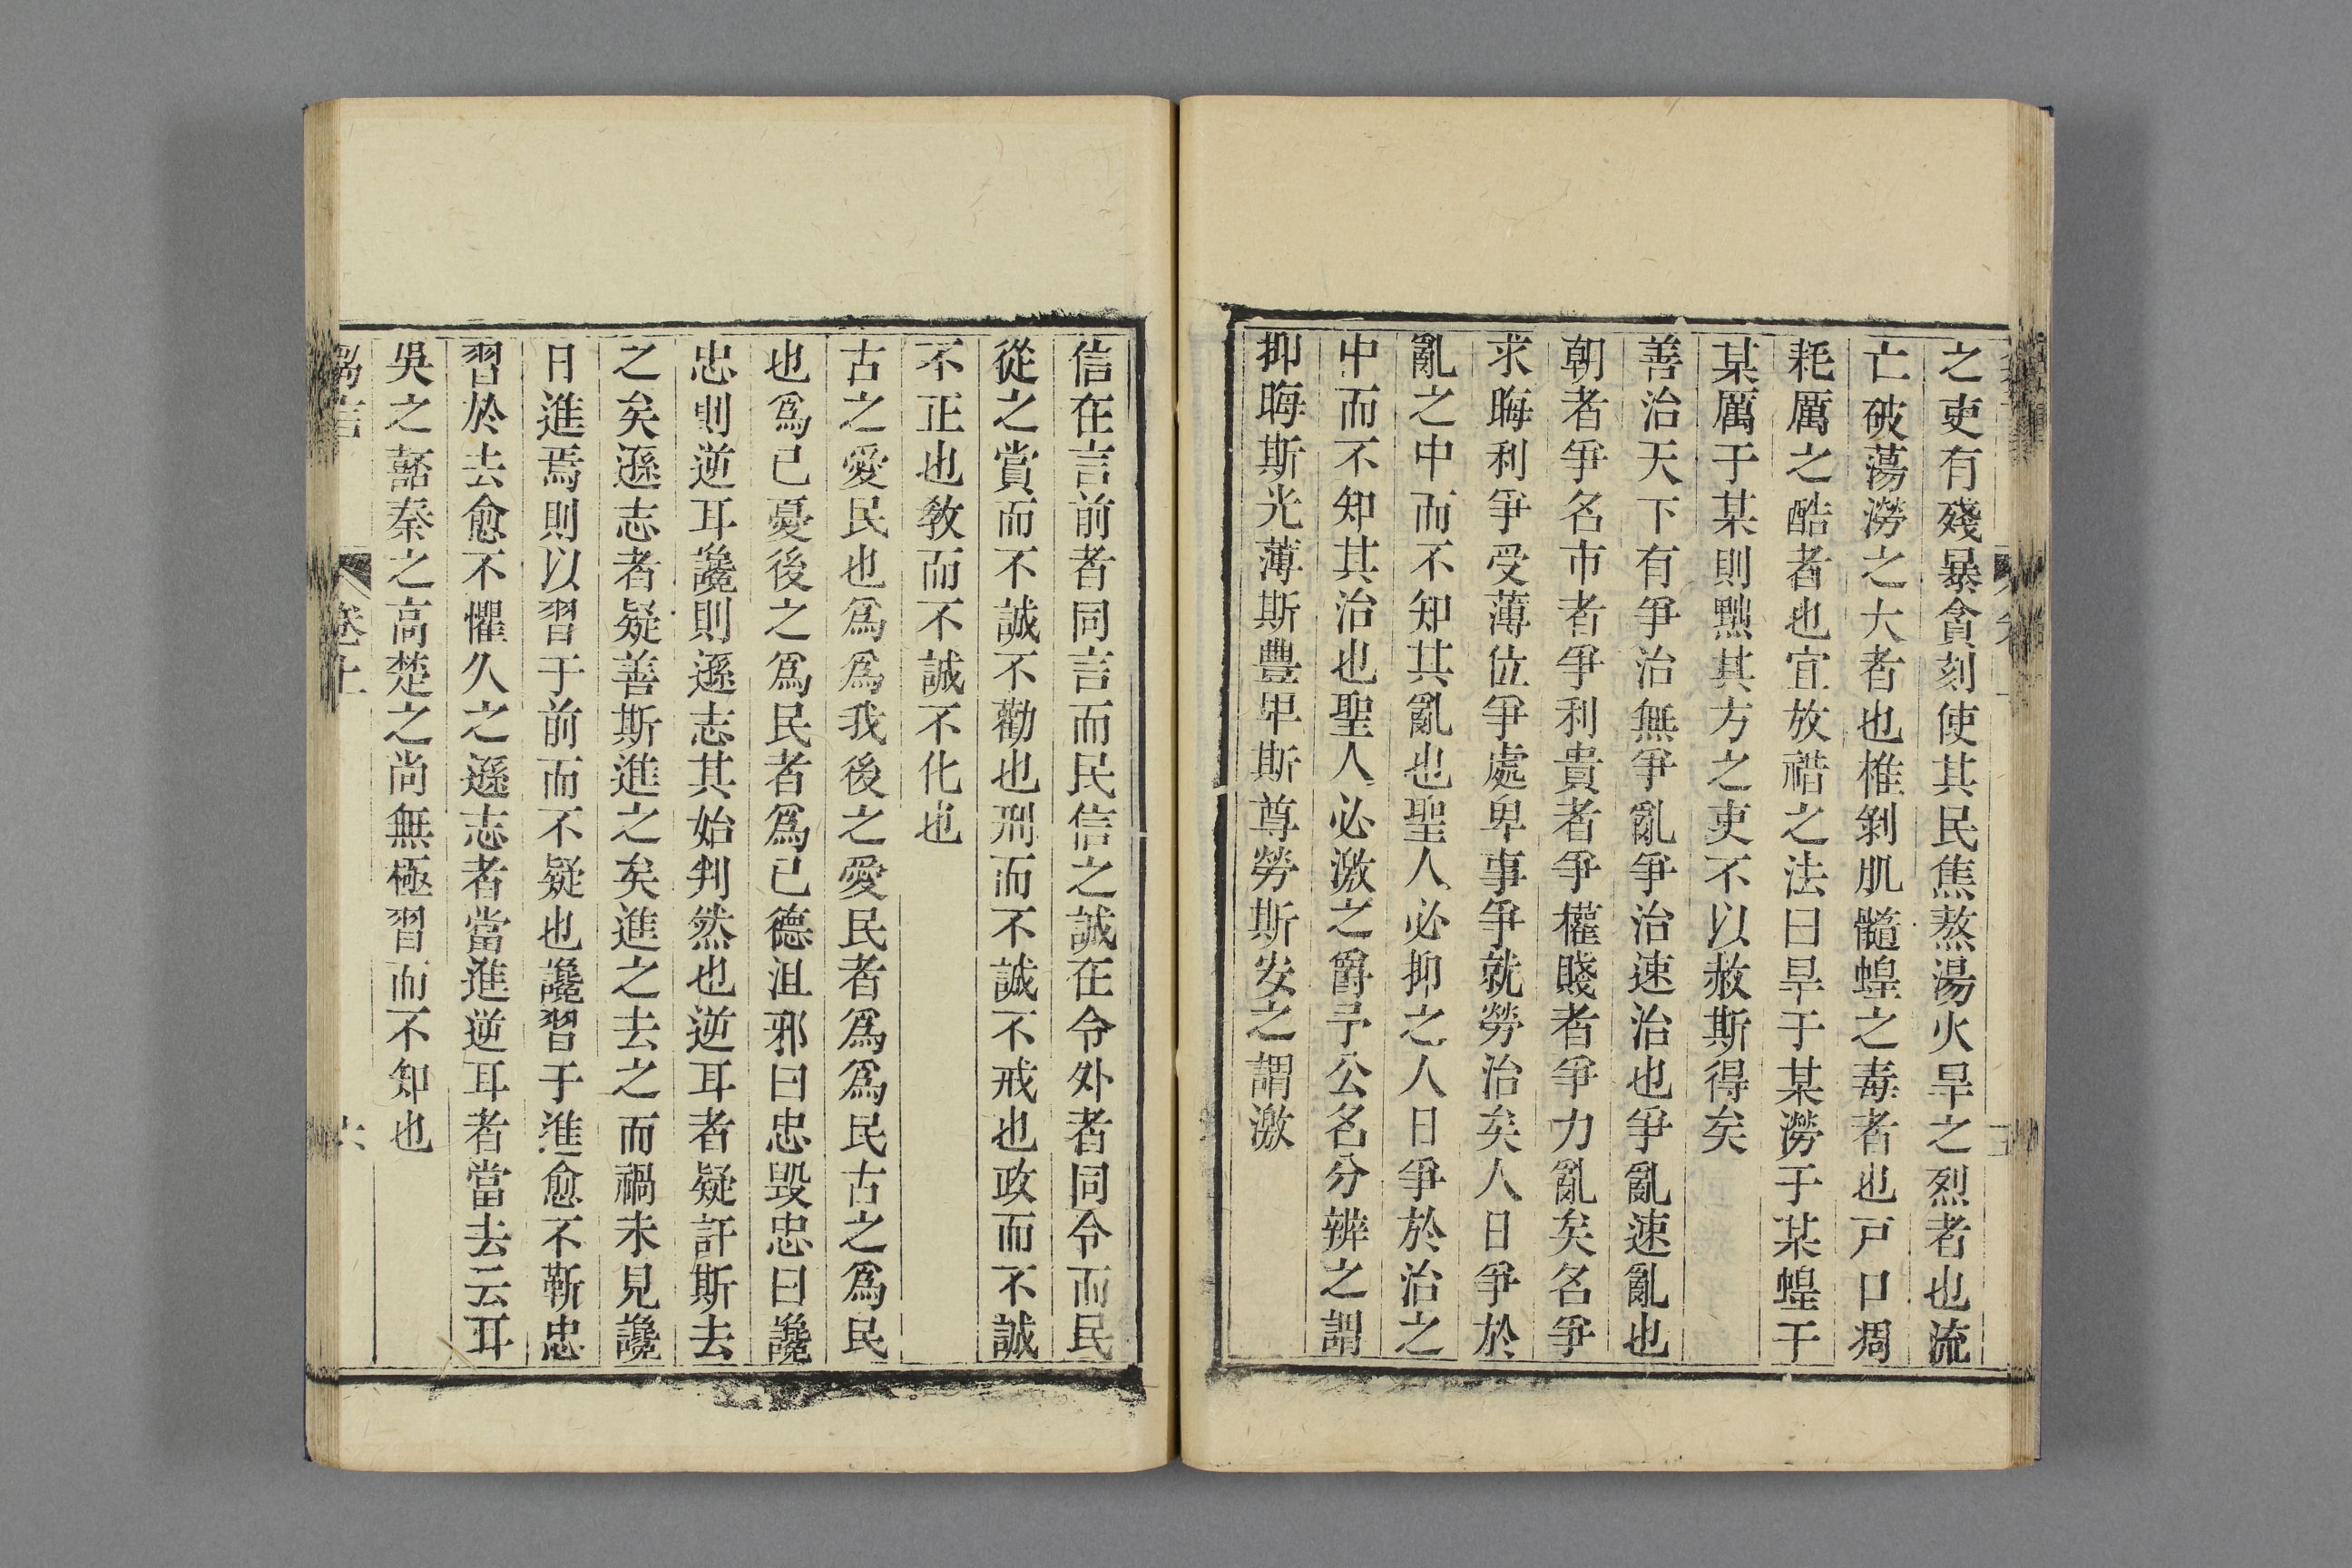 之吏有殘暴貪刻使其民焦熬湯火旱之烈者也流
亡破蕩澇之大者也椎剝肌髓蝗之毒者也戸口凋
耗厲之酷者也宜放禬之法曰旱于某澇于某蝗于
某厲于某則黜其方之吏不以赦斯得矣
善治天下有爭治無爭亂爭治速治也爭亂速亂也
朝者爭名市者爭利貴者爭權賤者爭力亂矣名爭
求晦利爭受薄位爭處卑事爭就勞治矣人日爭於
亂之中而不知其亂也聖人必抑之人日爭於治之
中而不知其治也聖人必激之爵予公名分辨之謂
抑晦斯光薄斯豊卑斯尊勞斯安之謂激
信在言前者同言而民信之誠在令外者同令而民
從之賞而不誠不勸也刑而不誠不戒也政而不誠
不正也敎而不誠不化也
古之愛民也爲爲我後之愛民者爲爲民古之爲民
也爲己憂後之爲民者爲己德沮邪曰忠毀忠曰讒
忠則逆耳讒則遜志其始判然也逆耳者疑訐斯去
之矣遜志者疑善斯進之矣進之去之而禍未見讒
日進焉則以習于前而不疑也讒習于進愈不靳忠
習於去愈不懼久之遜志者當進逆耳者當去云耳
吳之嚭秦之高楚之尚無極習而不知也
卷上
六